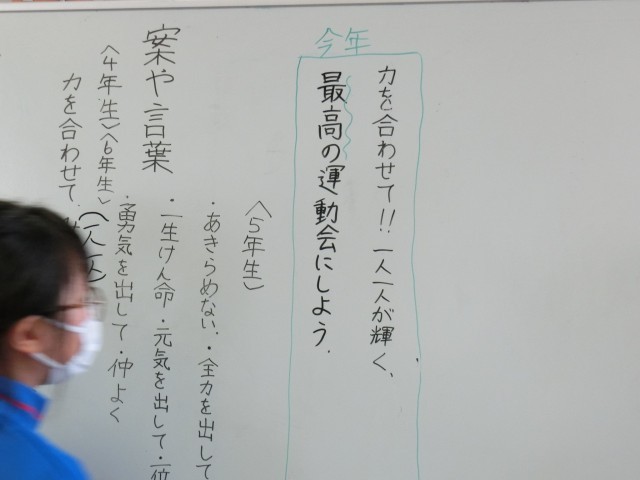 今年
力を合わせて!! 一人一人が輝く、
最高の運動会にしよう.
<5年生>
・あきらめない.・全力を出して
・一生けん命・元気を出して・一位
・勇気を出して・仲よく
案や言葉
<4年生><6年生>
力を合わせて